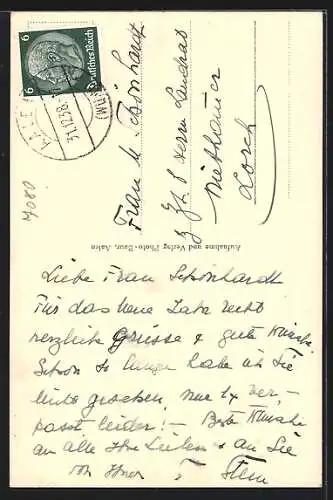 6 Deutsches Reich 6
AALEN
31.12.38
(WÜRTT)
7080
Frau M. Schönhardt
z. Zt. b. Herrn Landrat
Lorch
Aufnahme und Verlag Photo-Baur, Aalen
Liebe Frau Schönhardt
Für das neue Jahr recht
herzliche Grüsse & gute Wünsche
Schon so lange habe ich Sie
nicht gesehen, nur 1x ver-
passt leider! – Beste Wünsche
an alle Ihre Lieben & an Sie
von Ihrer